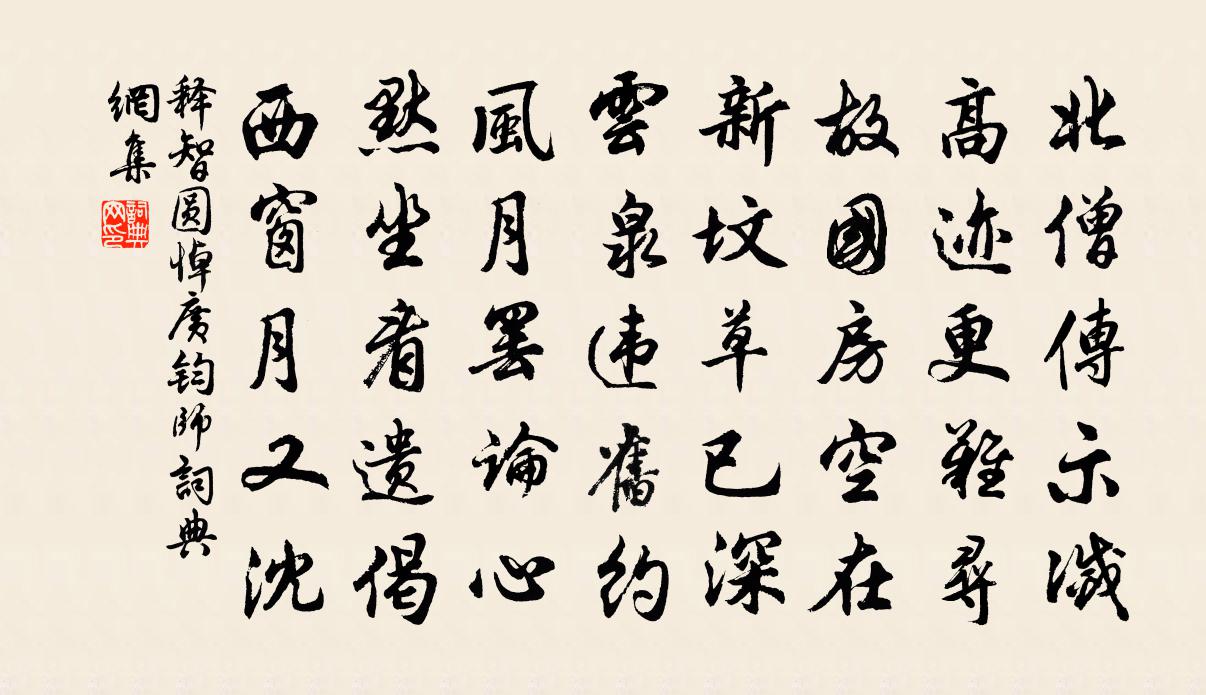 北僧傳示滅
高迹更難尋
故國房空在
新墳草已深
雲泉违舊約
風月罢論心
默坐看遗偈
西窗月又沈
释智圆悼广钧師詞典
網集
詞典
网印